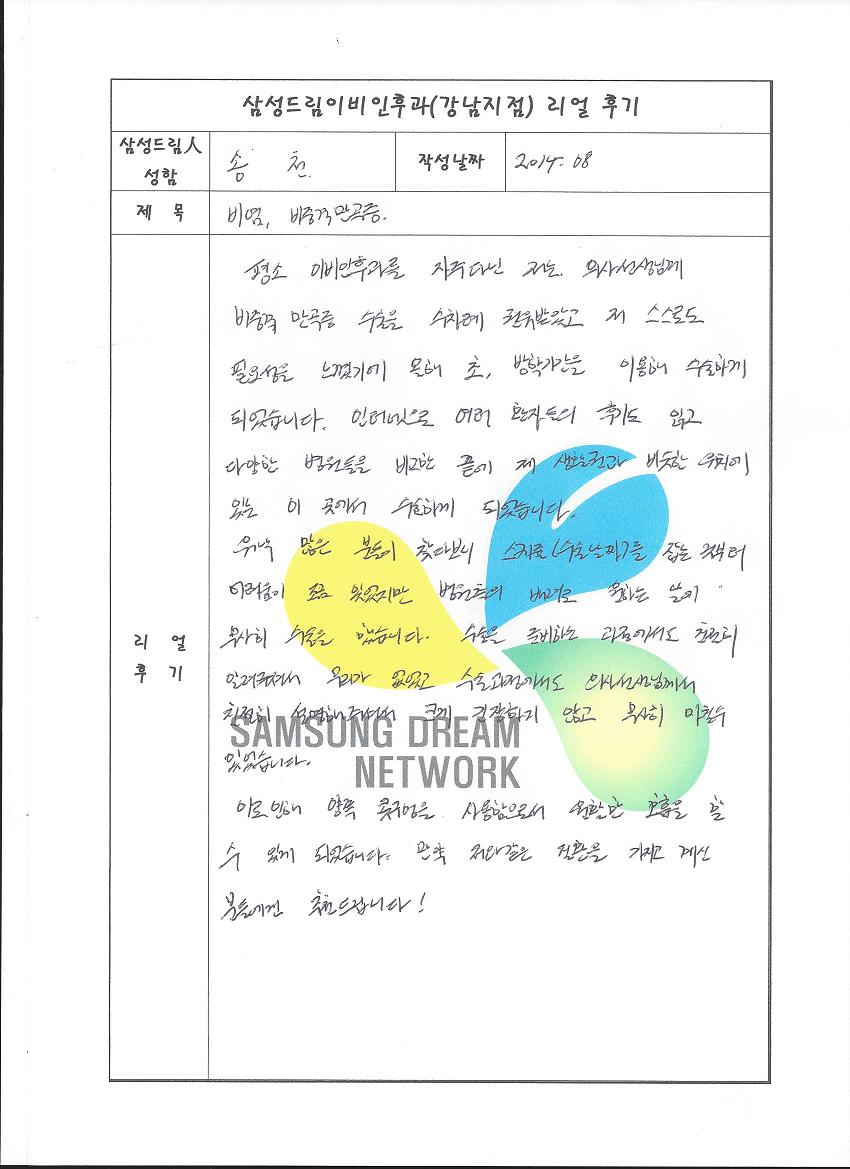 삼성드림이비인후과(강남지점) 리얼 후기
삼성드림人
성함
송 천
작성날짜
2014. 08
제 목
비염, 비중격만곡증.
평소 이비인후과를 자주다닌 저는 의사선생님께
비중격 만곡증 수술을 수차례 권유받았고 저 스스로도
필요성을 느꼈기에 올해 초, 방학기간을 이용해 수술하게
되었습니다. 인터넷으로 여러 환자들의 후기도 읽고
다양한 병원들을 비교한 끝에 제 생활권과 비슷한 위치에
있는 이 곳에서 수술하게 되었습니다.
워낙 많은 분들이 찾다보니 스케줄(수술날짜)를 잡는 것부터
어려움이 조금 있었지만 병원측의 배려로 원하는 날에
무사히 수술을 했습니다. 수술을 준비하는 과정에서도 친절히
알려주셔서 무리가 없었고 수술과정에서도 의사선생님께서
친절히 설명해주셔서 크게 긴장하지 않고 무사히 마칠수
있었습니다.
이로인해 양쪽 콧구멍을 사용함으로서 원활한 호흡을 할
수 있게 되었습니다. 만약 저와같은 질환을 가지고 계신
분들에겐 추천드립니다!
리 얼
후 기
SAMSUNG DREAM
NETWORK